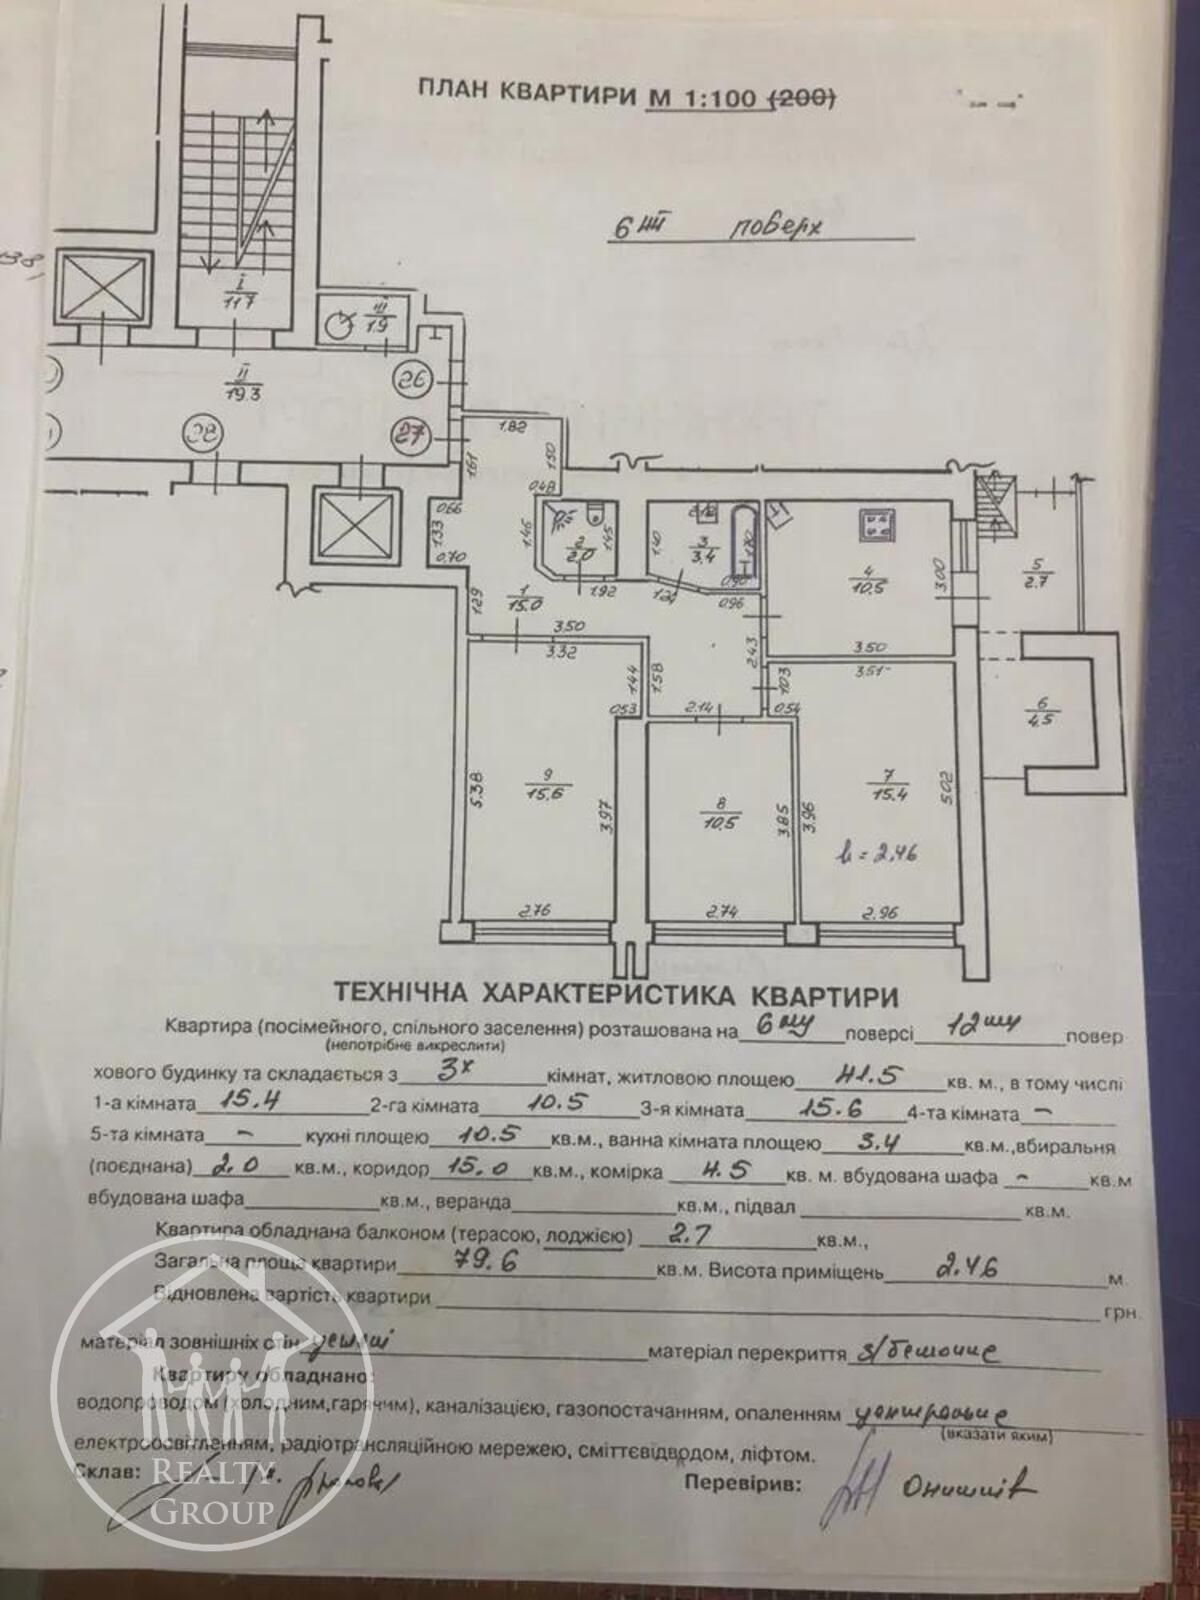 ПЛАН КВАРТИРИ М 1:100 (200)
6ий поверх
I
11.7
III
1.9
II
19.3
26
27
28
1.82
1.50
1.61
0.48
0.66
1.33
0.70
1.46
2
2.0
1.45
1.40
3
3.4
1.70
0.90
4
10.5
3.00
5
2.7
1.29
1
15.0
1.92
1.24
0.96
3.50
3.32
2.43
3.50
3.51
1.44
1.58
1.03
0.53
2.14
0.54
6
4.5
5.38
9
15.6
3.97
8
10.5
3.85
3.96
7
15.4
5.02
h = 2.46
2.76
2.74
2.96
ТЕХНІЧНА ХАРАКТЕРИСТИКА КВАРТИРИ
Квартира (посімейного, спільного заселення) розташована на 6му поверсі 12му повер
(непотрібне викреслити)
хового будинку та складається з 3х кімнат, житловою площею 41.5 кв. м., в тому числі
1-а кімната 15.4 2-га кімната 10.5 3-я кімната 15.6 4-та кімната –
5-та кімната – кухні площею 10.5 кв.м., ванна кімната площею 3.4 кв.м.,вбиральня
(поєднана) 2.0 кв.м., коридор 15.0 кв.м., комірка 4.5 кв. м. вбудована шафа – кв.м
вбудована шафа кв.м., веранда кв.м., підвал кв.м.
Квартира обладнана балконом (терасою, лоджією) 2.7 кв.м.,
Загальна площа квартири 79.6 кв.м. Висота приміщень 2.46 м.
Відновлена вартість квартири грн.
матеріал зовнішніх стін матеріал перекриття з/бетонне
Квартиру обладнано:
водопроводом (холодним,гарячим), каналізацією, газопостачанням, опаленням центральне
(вказати яким)
електроосвітленням, радіотрансляційною мережею, сміттєвідводом, ліфтом.
Склав: Перевірив:
REALTY
GROUP